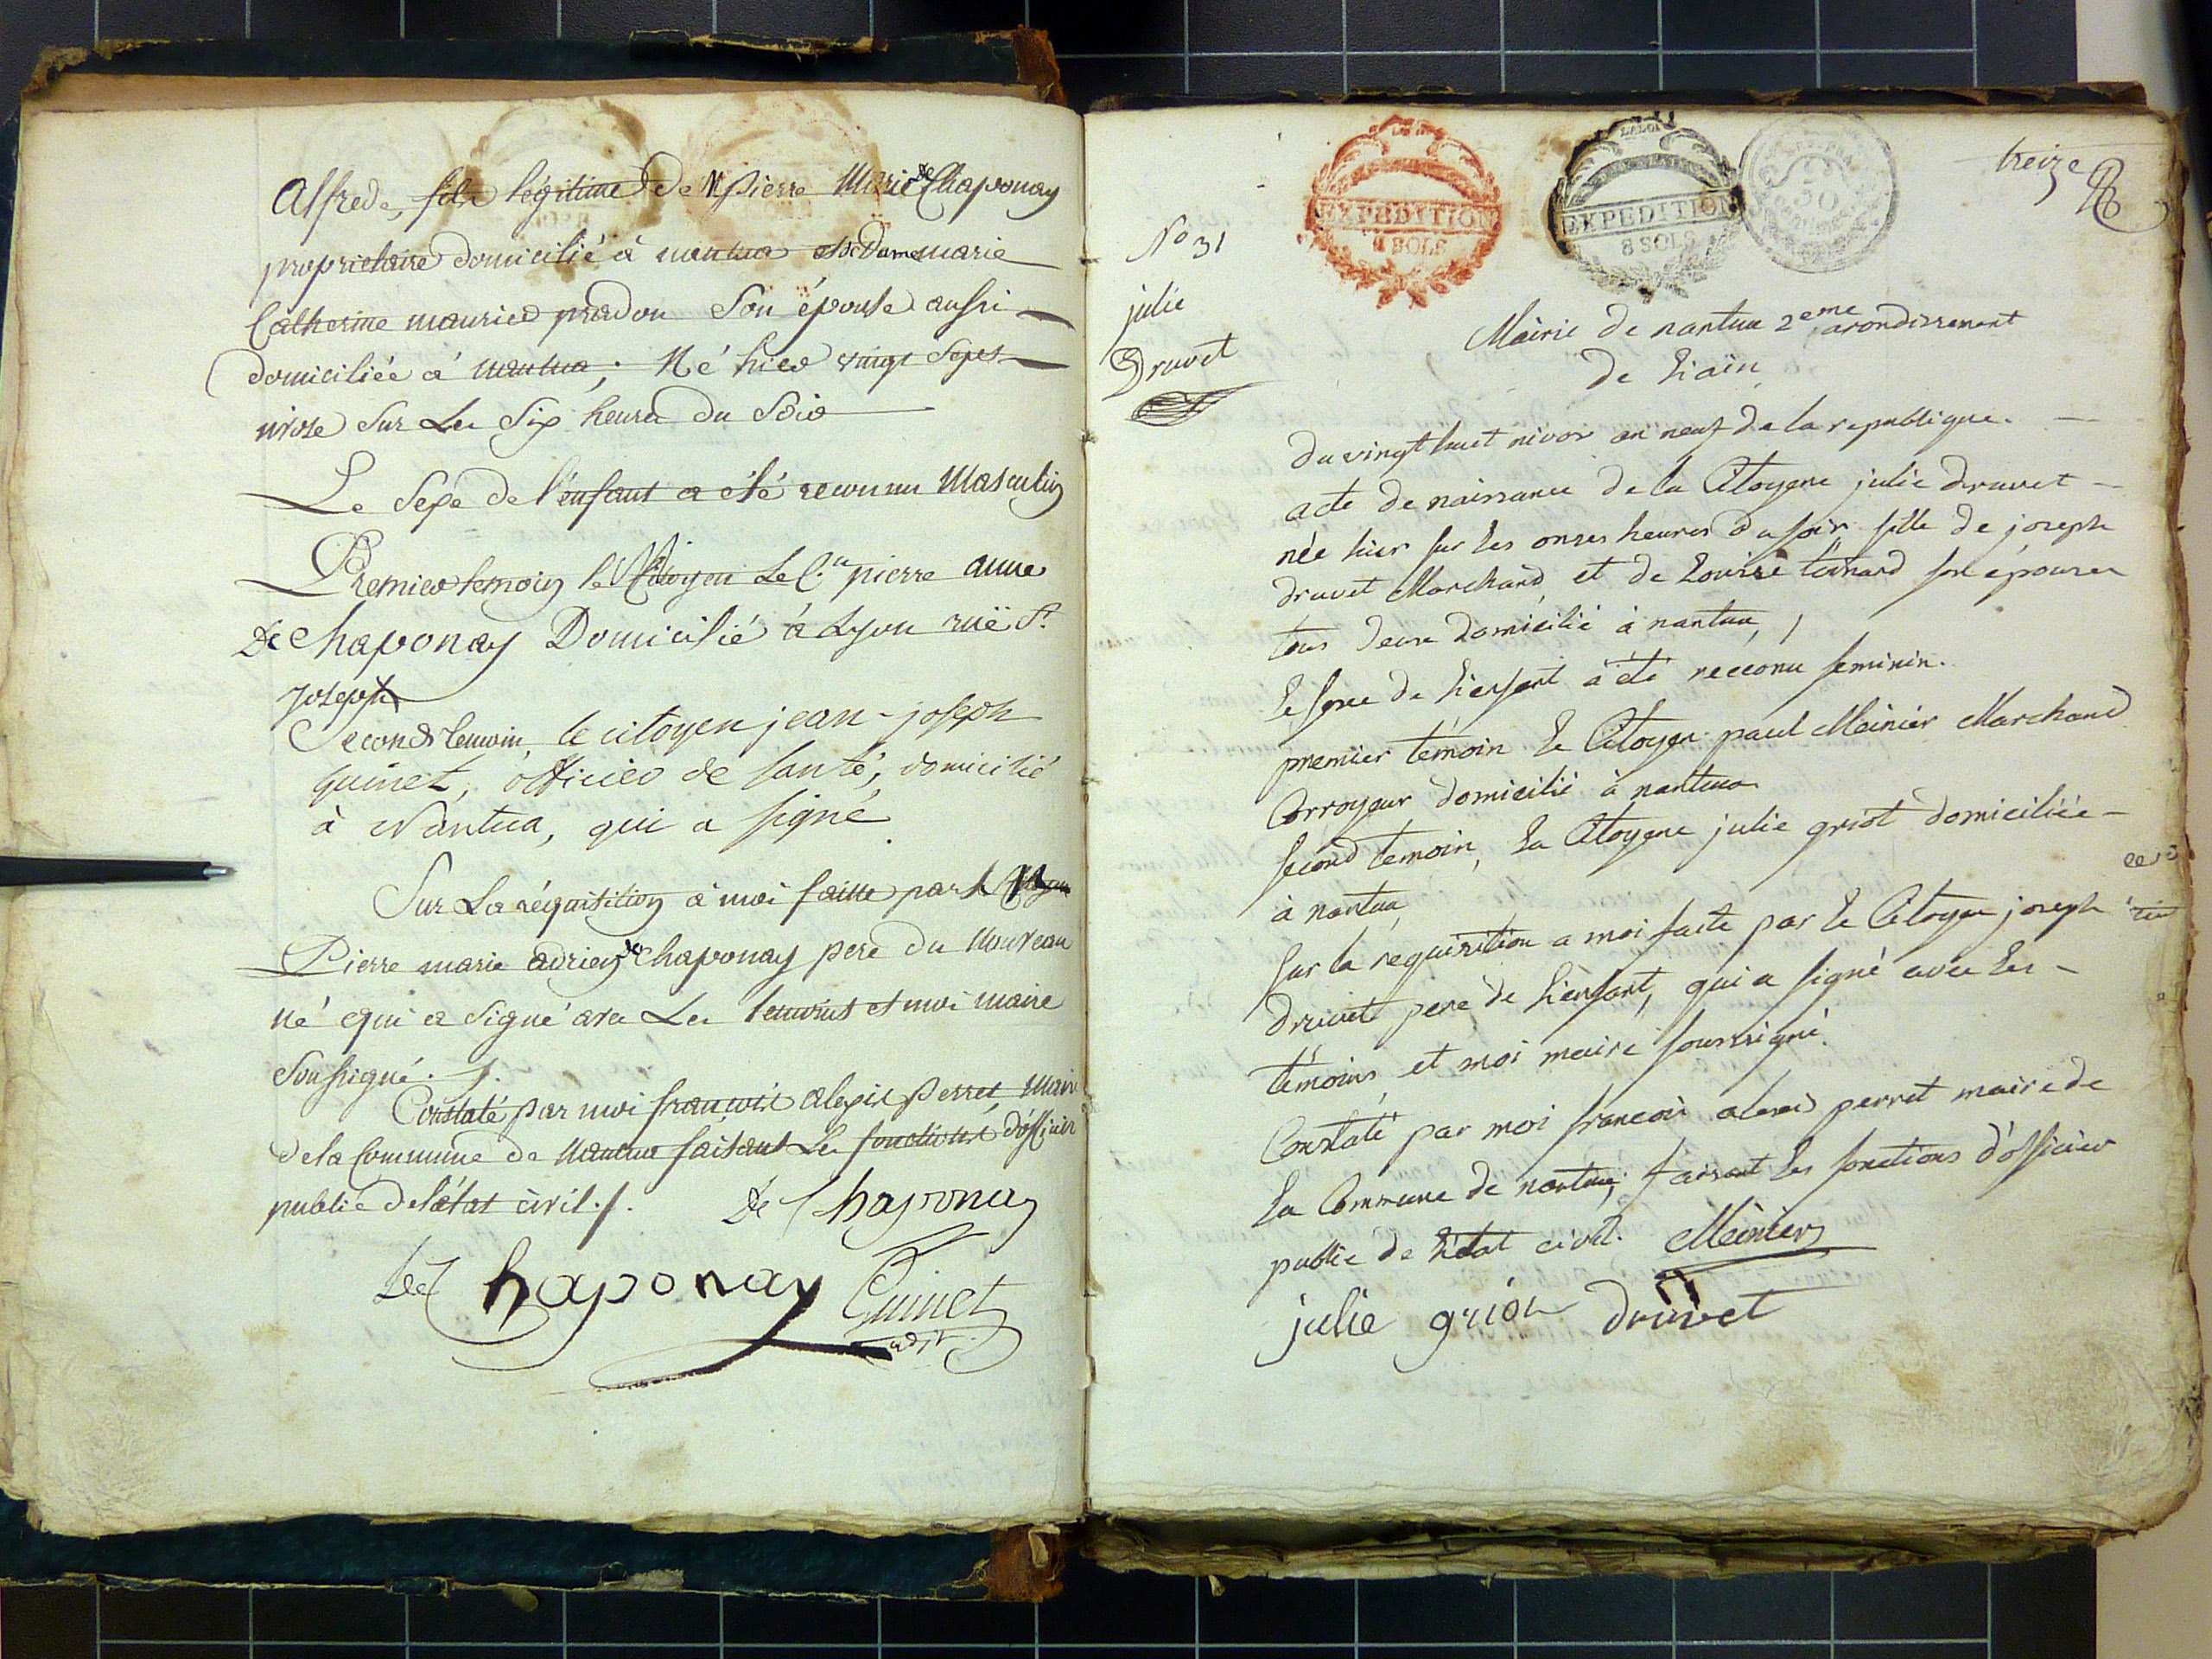 Alfrede, fils légitime de M pierre Marie de Chaponay
propriétaire domicilié à nantua et de Dame marie
Catherine maurice pradon Son épouse aussi
domiciliée à nantua; Né hier vingt Sept
nivose Sur Les Six heures du Soir
Le Sexe de l'enfant a été reconnu Masculin
Premier temoin le Citoyen Le C.en pierre anne
De Chaponay Domicilié à Lyon ruë St.
Joseph
Second temoin, le citoyen jean-joseph
quinet, officier de santé, domicilié
à Nantua, qui a signé
Sur La réquisition à moi faitte par le
Pierre marie adrien de Chaponay pere du Nouveau
né qui a Signé avec Les temoins et moi maire
Soussigné. /.
Constaté par moi françois alexis perret, Maire
de la Commune de Nantua faisant Les fonctions d'officier
public de l'état civil. /. De Chaponay
De Chaponay Quinet
treize
EXPEDITION
8 SOLS
LA LOI
EXPEDITION
8 SOLS
50
No 31
julie
Druvet
Mairie de nantua 2eme arondissement
de L'ain
du vingt huit nivos an neuf de la republique.
acte de naissance de la Citoyene julie druvet
née hier sur les onzes heures du soir fille de joseph
druvet Marchand, et de Louise tournard son épouse
tous deux domicilié à nantua,
le sexe de L'enfant a été reconu feminin.
premier témoin le Citoyen paul Meinier Marchand
Corroyeur domicilié à nantua
second temoin, La Citoyene julie griot domiciliée
à nantua
sur la requisition a moi faite par le Citoyen joseph
druvet pere de L'enfant, qui a signé avec les
témoins et moi maire soussigné.
Constaté par moi francois alexis perret maire de
La Commune de nantua, faisant les fonctions d'officier
public de L'état civil. Meinier
julie griot druvet